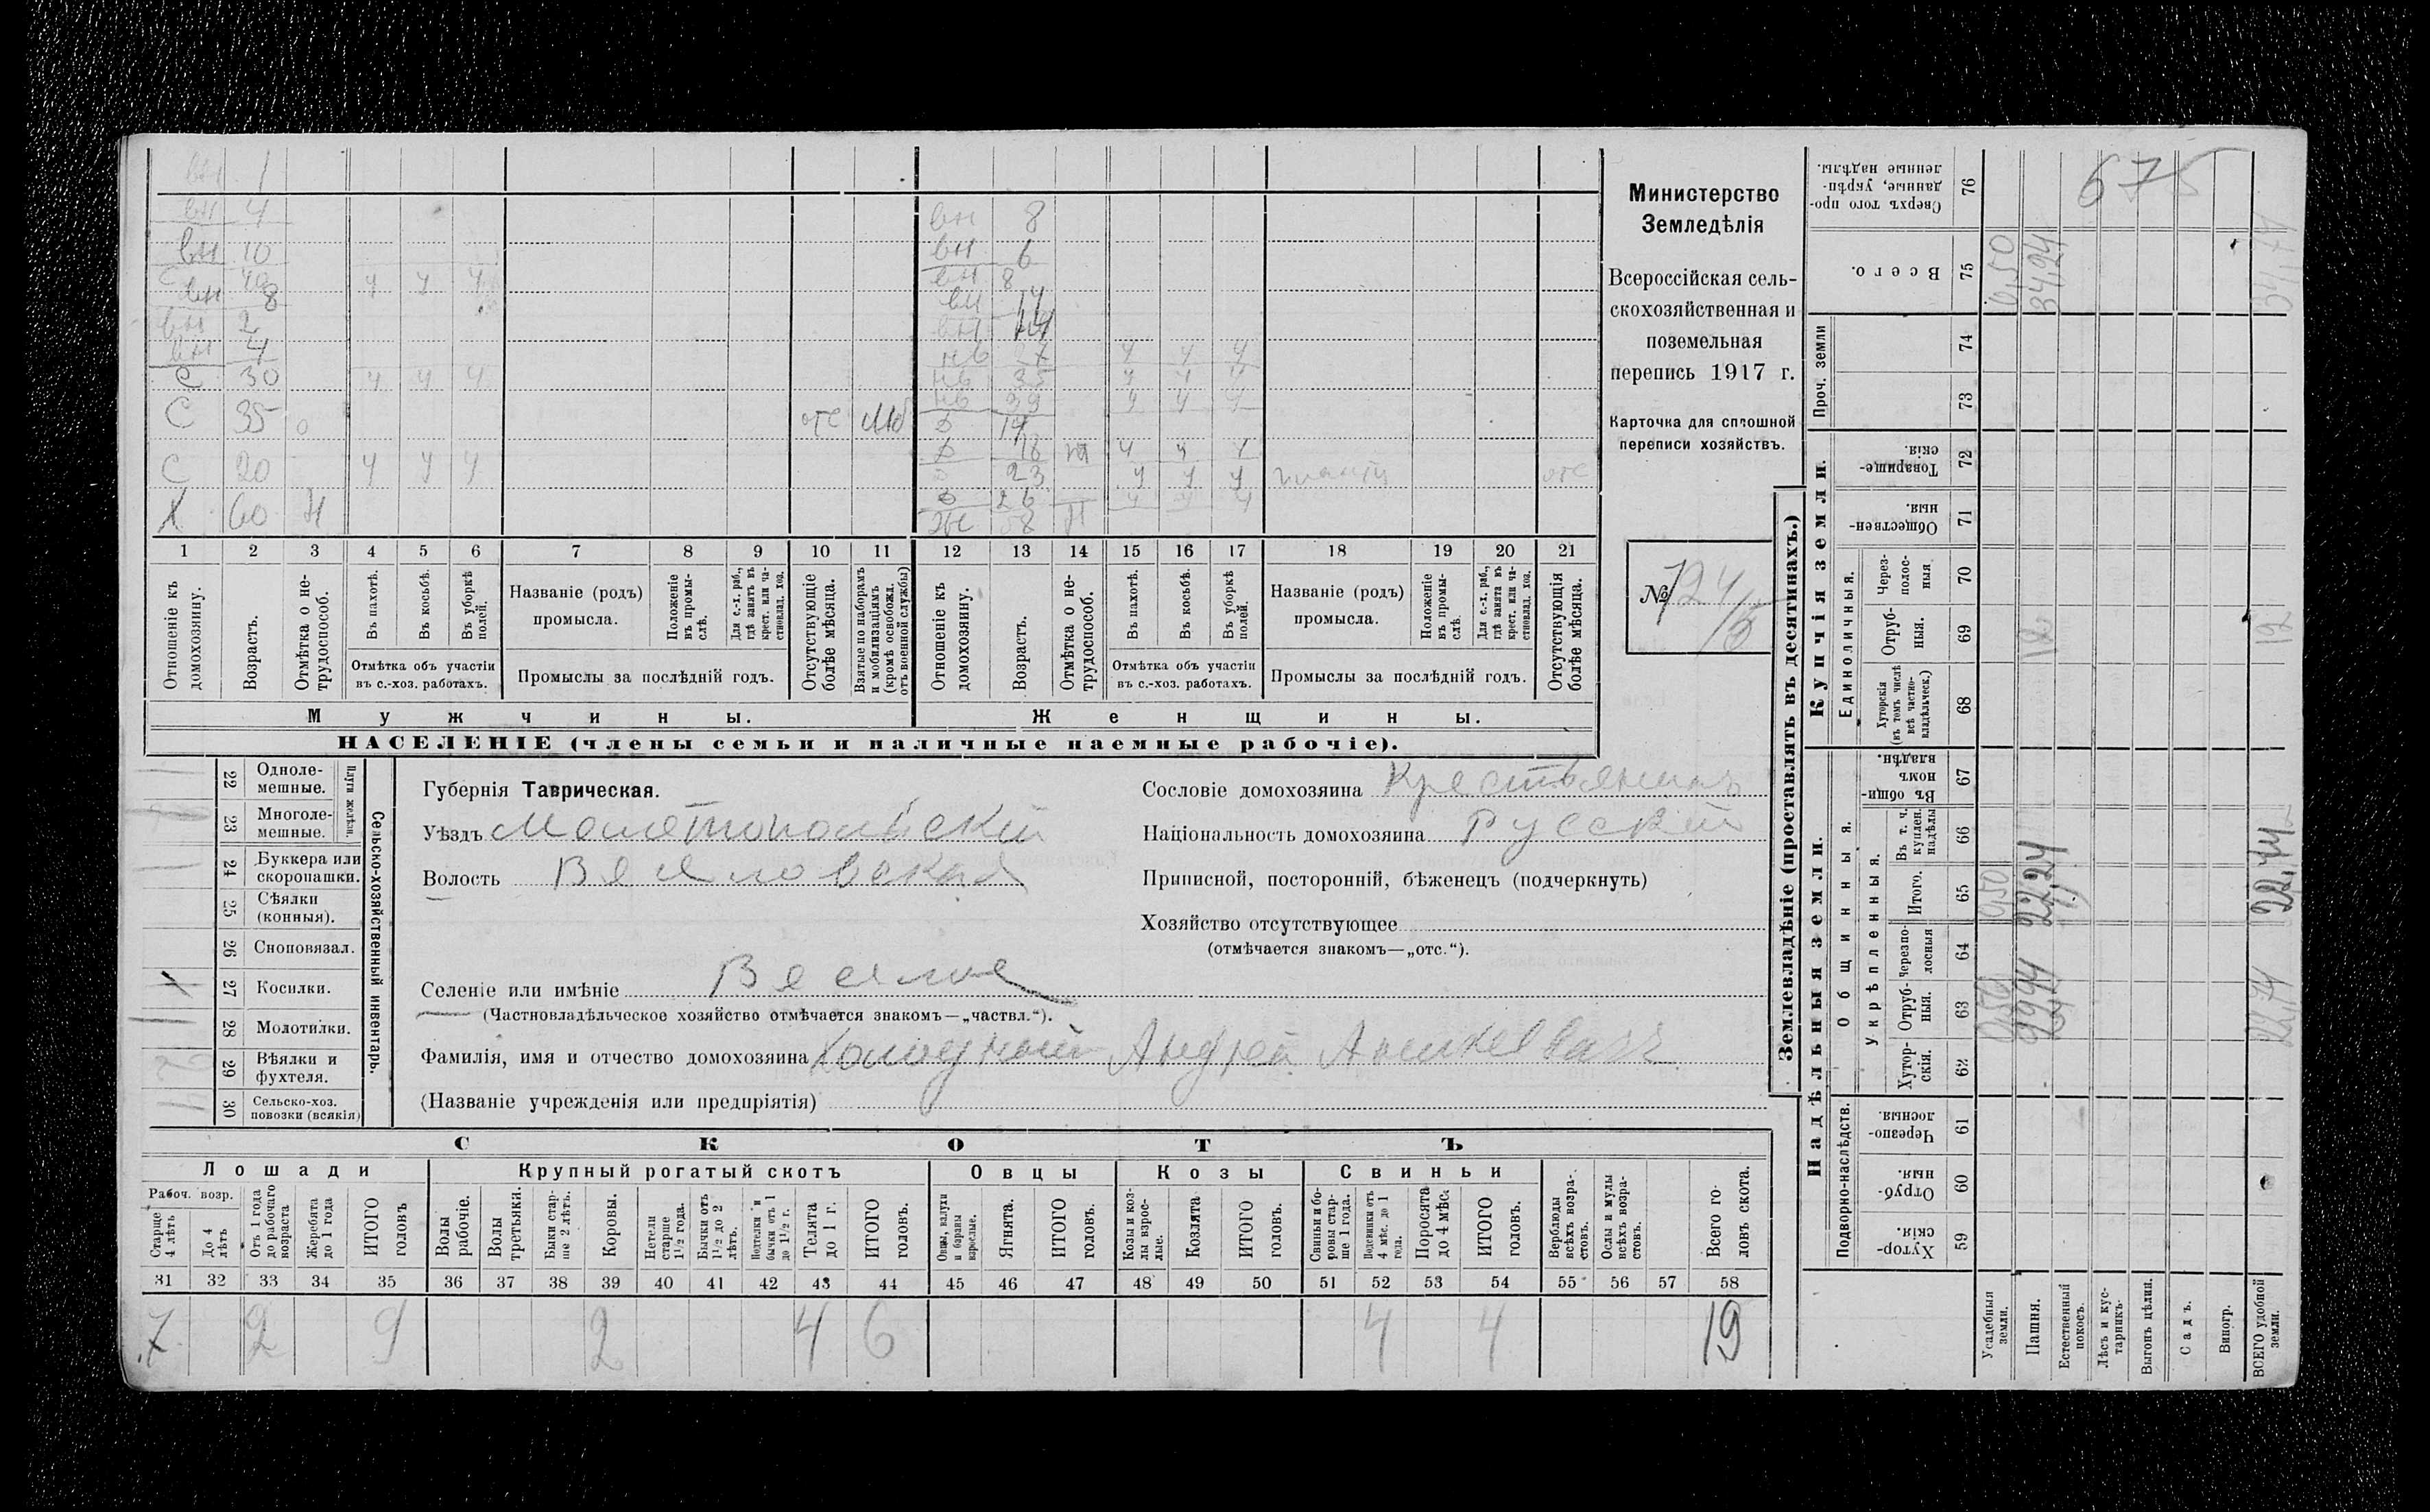 вн 1
вн 4
вн 10
С 40 ч ч ч
вн 8
вн 2
вн 4
С 30 ч ч ч
С 35 о отс Моб
С 20 ч ч ч
Х 60 Н
вн 8
вн 6
вн 8
вн 14
вн
нв 27 ч ч ч
нв 35 ч ч ч
нв 33 ч ч ч
д 14
д 18 ч ч ч
д 23 ч ч ч отс
д 26 ч ч ч
Же 58 П
1 2 3 4 5 6 7 8 9 10 11 12 13 14 15 16 17 18 19 20 21
Отношеніе къ домохозяину.
Возрастъ.
Отмѣтка о не-трудоспособ.
Въ пахотѣ.
Въ косьбѣ.
Въ уборкѣ полей.
Отмѣтка объ участіи
въ с.-хоз. работахъ.
Названіе (родъ)
промысла.
Положеніе въ промы-слѣ.
Для с.-х. раб., гдѣ занятъ въ крест. или ча-стновлад. хоз.
Промыслы за послѣдній годъ.
Отсутствующіе болѣе мѣсяца.
Взятые по наборамъ и мобилизаціямъ (кромѣ освобожд. отъ военной службы)
Отношеніе къ домохозяину.
Возрастъ.
Отмѣтка о не-трудоспособ.
Въ пахотѣ.
Въ косьбѣ.
Въ уборкѣ полей.
Отмѣтка объ участіи
въ с.-хоз. работахъ.
Названіе (родъ)
промысла.
Положеніе въ промы-слѣ.
Для с.-х. раб., гдѣ занята въ крест. или ча-стновлад. хоз.
Промыслы за послѣдній годъ.
Отсутствующія болѣе мѣсяца.
Мужчины. Женщины.
НАСЕЛЕНІЕ (члены семьи и наличные наемные рабочіе).
Министерство
Земледѣлія
Всероссійская сель-
скохозяйственная и
поземельная
перепись 1917 г.
Карточка для сплошной
переписи хозяйствъ.
№ 124/5
22 Одноле-мешные.
23 Многоле-мешные.
Плуги желѣзн.
24 Буккера или скоропашки.
25 Сѣялки (конныя).
26 Сноповязал.
27 Косилки. 1
28 Молотилки. 1
29 Вѣялки и фухтеля.
30 Сельско-хоз. повозки (всякія)
Сельско-хозяйственный инвентарь.
Губернія Таврическая.
Уѣздъ Мелитопольскій
Волость Веселовская
Селеніе или имѣніе Веселое
(Частновладѣльческое хозяйство отмѣчается знакомъ—„частвл.“).
Фамилія, имя и отчество домохозяина Колодный Андрей
(Названіе учрежденія или предпріятія)
Сословіе домохозяина Крестьянинъ
Національность домохозяина Русскій
Приписной, посторонній, бѣженецъ (подчеркнуть)
Хозяйство отсутствующее
(отмѣчается знакомъ—„отс.“).
СКОТЪ
Лошади Крупный рогатый скотъ Овцы Козы Свиньи
Рабоч. возр.
Старше 4 лѣтъ
До 4 лѣтъ
Отъ 1 года до рабочаго возраста
Жеребята до 1 года
ИТОГО головъ
Волы рабочіе.
Волы третьяки.
Быки стар-ше 2 лѣтъ.
Коровы.
Нетели старше 1½ года.
Бычки отъ 1½ до 2 лѣтъ.
Подтелки и бычки отъ 1 до 1½ г.
Телята до 1 г.
ИТОГО головъ.
Овцы, валухи и бараны взрослые.
Ягнята.
ИТОГО головъ.
Козы и коз-лы взрос-лые.
Козлята
ИТОГО головъ.
Свиньи и бо-ровы стар-ше 1 года.
Подсвинки отъ 4 мѣс. до 1 года.
Поросята до 4 мѣс.
ИТОГО головъ.
Верблюды всѣхъ возра-стовъ.
Ослы и мулы всѣхъ возра-стовъ.
Всего го-ловъ скота.
31 32 33 34 35 36 37 38 39 40 41 42 43 44 45 46 47 48 49 50 51 52 53 54 55 56 57 58
7 2 9 2 4 6 4 4 19
Землевладѣніе (проставлять въ десятинахъ.)
Надѣльныя земли. Купчія земли.
Подворно-наслѣдств. Общинныя. Единоличныя. Проч. земли
Укрѣпленныя.
Хутор-скія. 59
Отруб-ныя. 60
Черезпо-лосныя. 61
Хутор-скія. 62
Отруб-ныя. 63
Черезпо-лосныя 64
Итого. 65
Въ т. ч. куплен. надѣлы 66
Въ общи-номъ владѣн. 67
Хуторскія (въ томъ числѣ всѣ частно-владѣльческ.) 68
Отруб-ныя. 69
Через-полос-ныя 70
Обществен-ныя. 71
Товарище-скія. 72
73
74
Всего. 75
Сверхъ того про-данные, укрѣп-ленные надѣлы. 76
Усадебныя земли. 0,50 0,50 0,50
Пашня. 22,24 12 34,24
Естественный покосъ.
Лѣсъ и кус-тарникъ.
Выгонъ цѣлин.
Садъ.
Виногр.
ВСЕГО удобной земли. 22,74 22,74 12 34,74
675